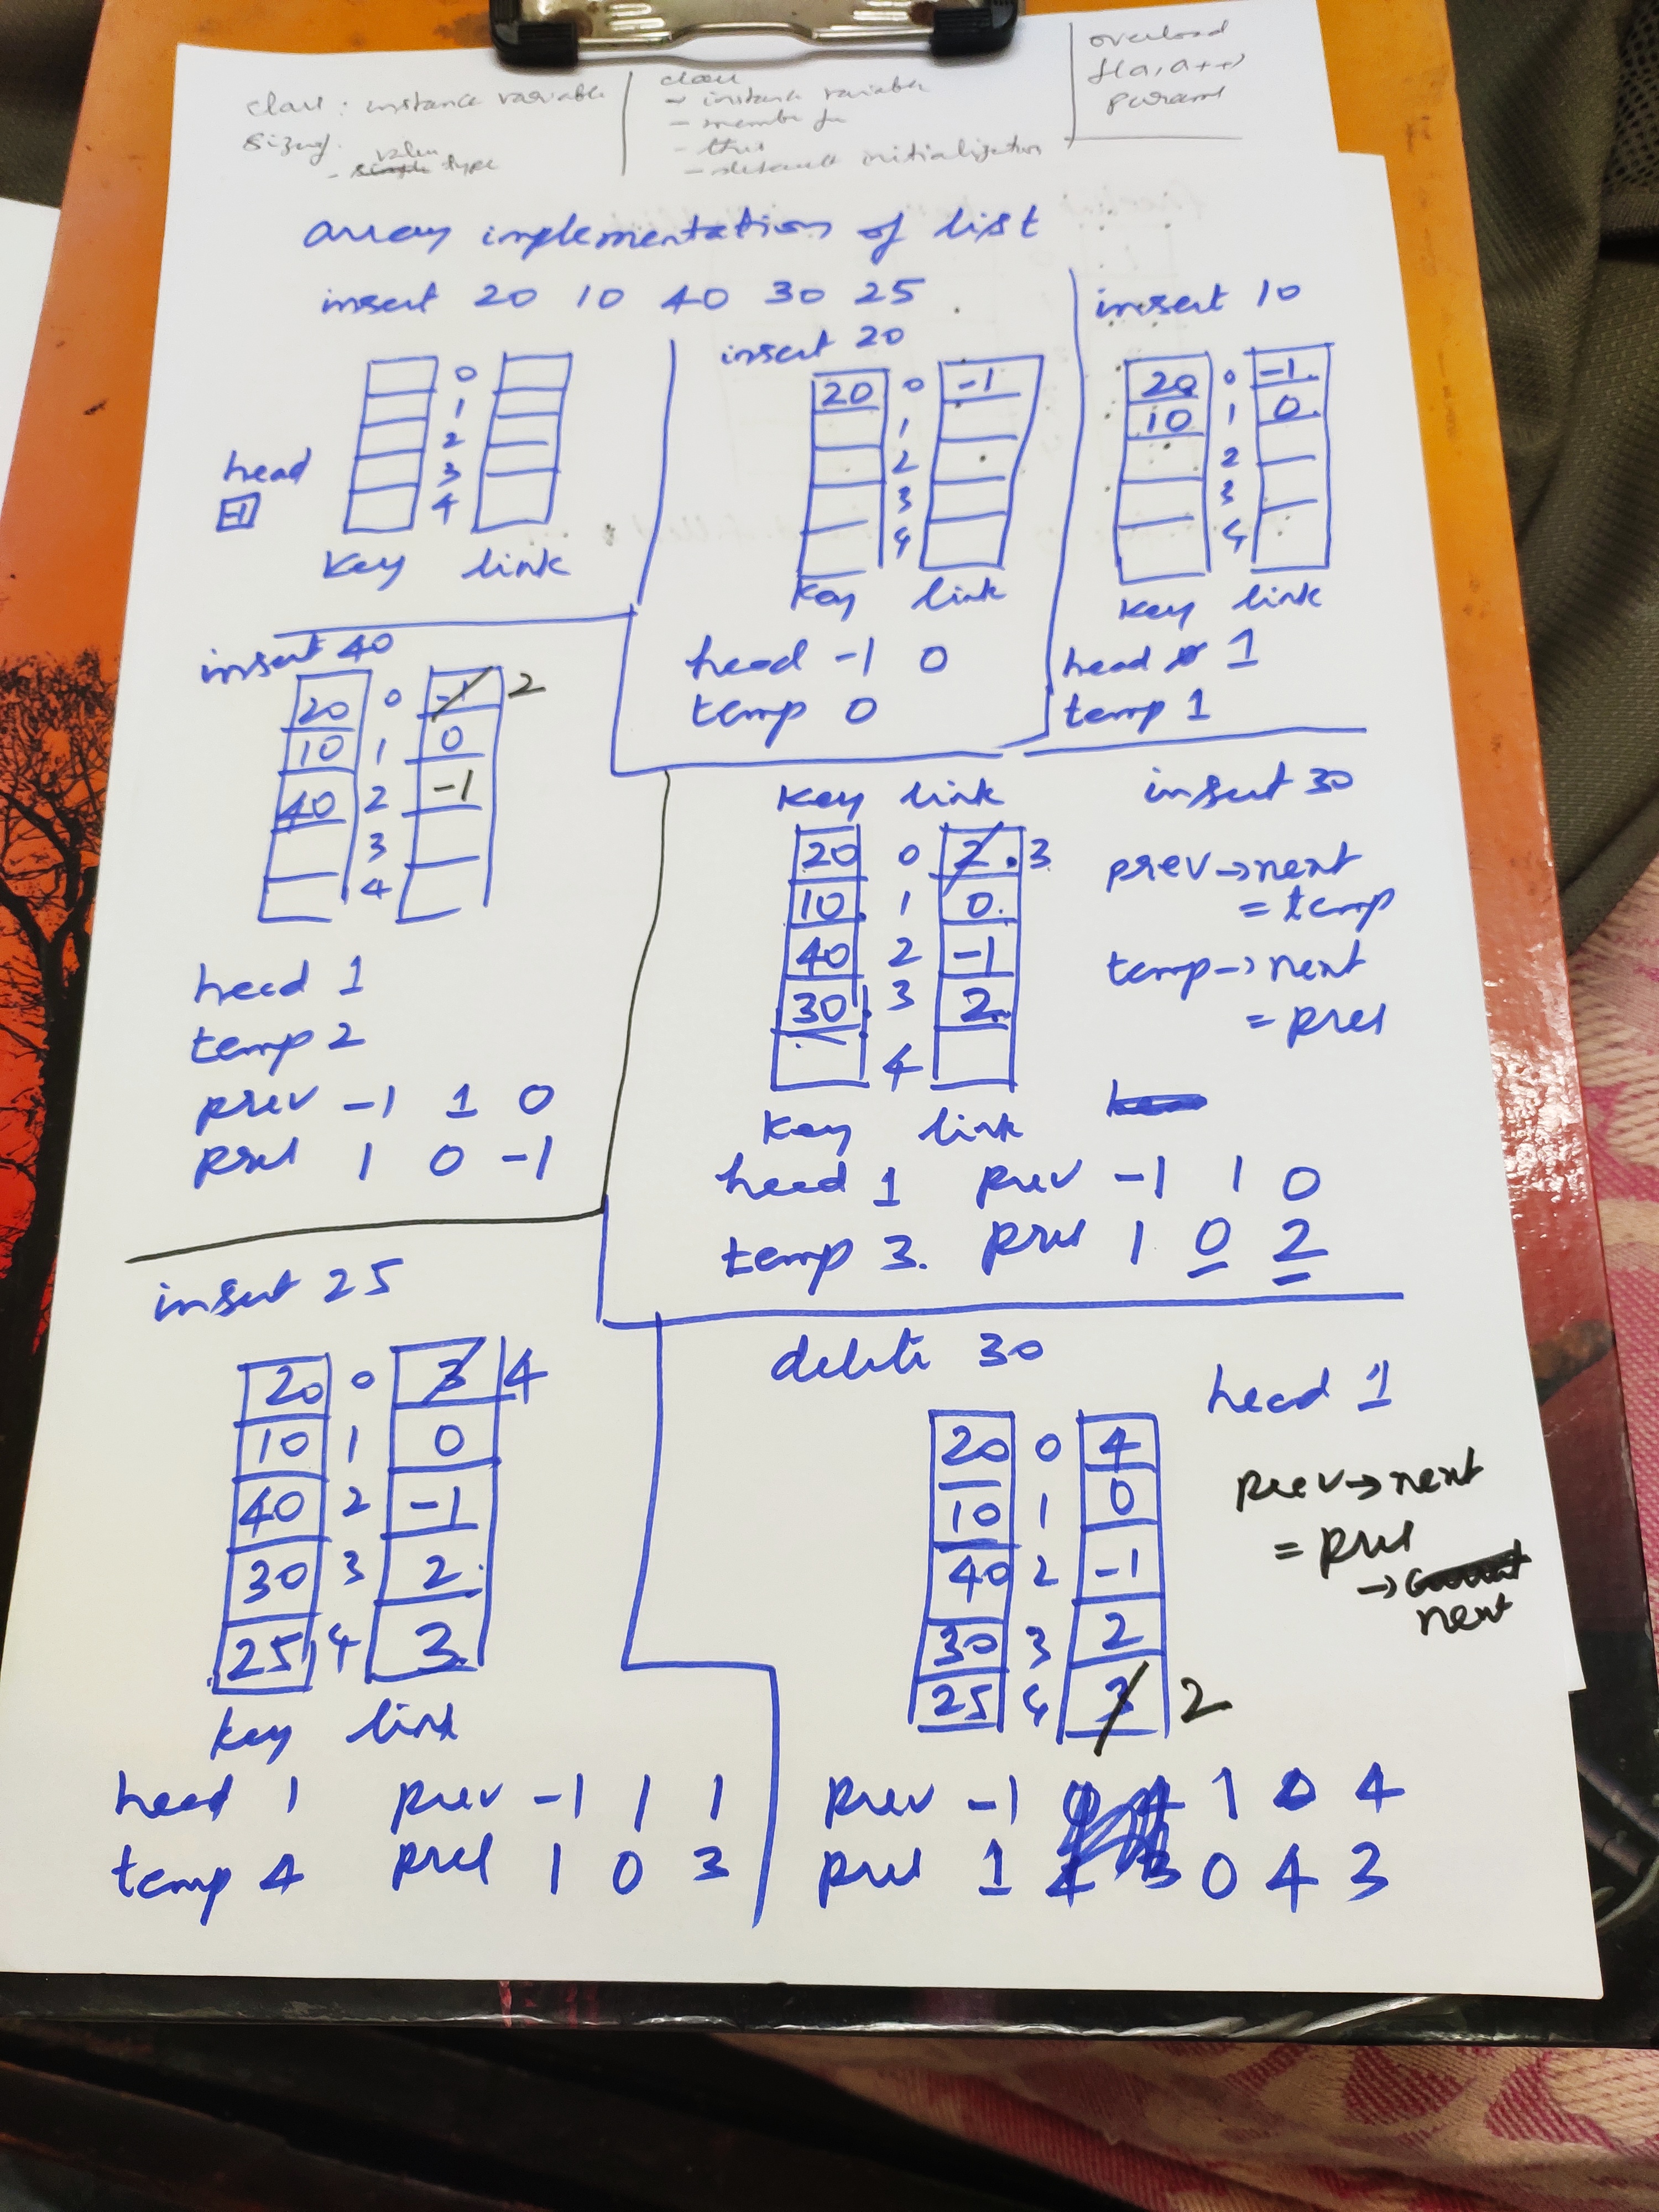 class : instance variable
sizeof
- simple value type
class
- instance variable
- member fn
- this
- default initialization
overload
f(a, a++)
param
array implementation of list
insert 20 10 40 30 25
head
-1
0
1
2
3
4
key link
insert 20
20 0 -1
1
2
3
4
key link
head -1 0
temp 0
insert 10
20 0 -1
10 1 0
2
3
4
key link
head 0 1
temp 1
insert 40
20 0 -1 2
10 1 0
40 2 -1
3
4
head 1
temp 2
prev -1 1 0
pres 1 0 -1
insert 30
key link
20 0 2 3
10 1 0
40 2 -1
30 3 2
4
key link
prev → next
= temp
temp → next
= pres
head 1 prev -1 1 0
temp 3. pres 1 0 2
insert 25
20 0 3 4
10 1 0
40 2 -1
30 3 2
25 4 3
key link
head 1 prev -1 1 1
temp 4 pres 1 0 3
delete 30
head 1
20 0 4
10 1 0
40 2 -1
30 3 2
25 4 3 2
prev → next
= pres
→ next
prev -1 1 0 4
pres 1 0 4 3